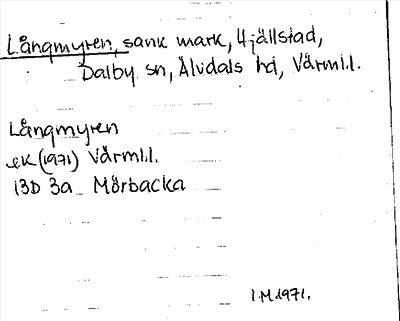 Långmyren, sank mark, Hjällstad,
Dalby sn, Älvdals hd, Värml.l.
Långmyren
eK (1971) Värml.l.
13D 3a Mörbacka
I.M.1971.